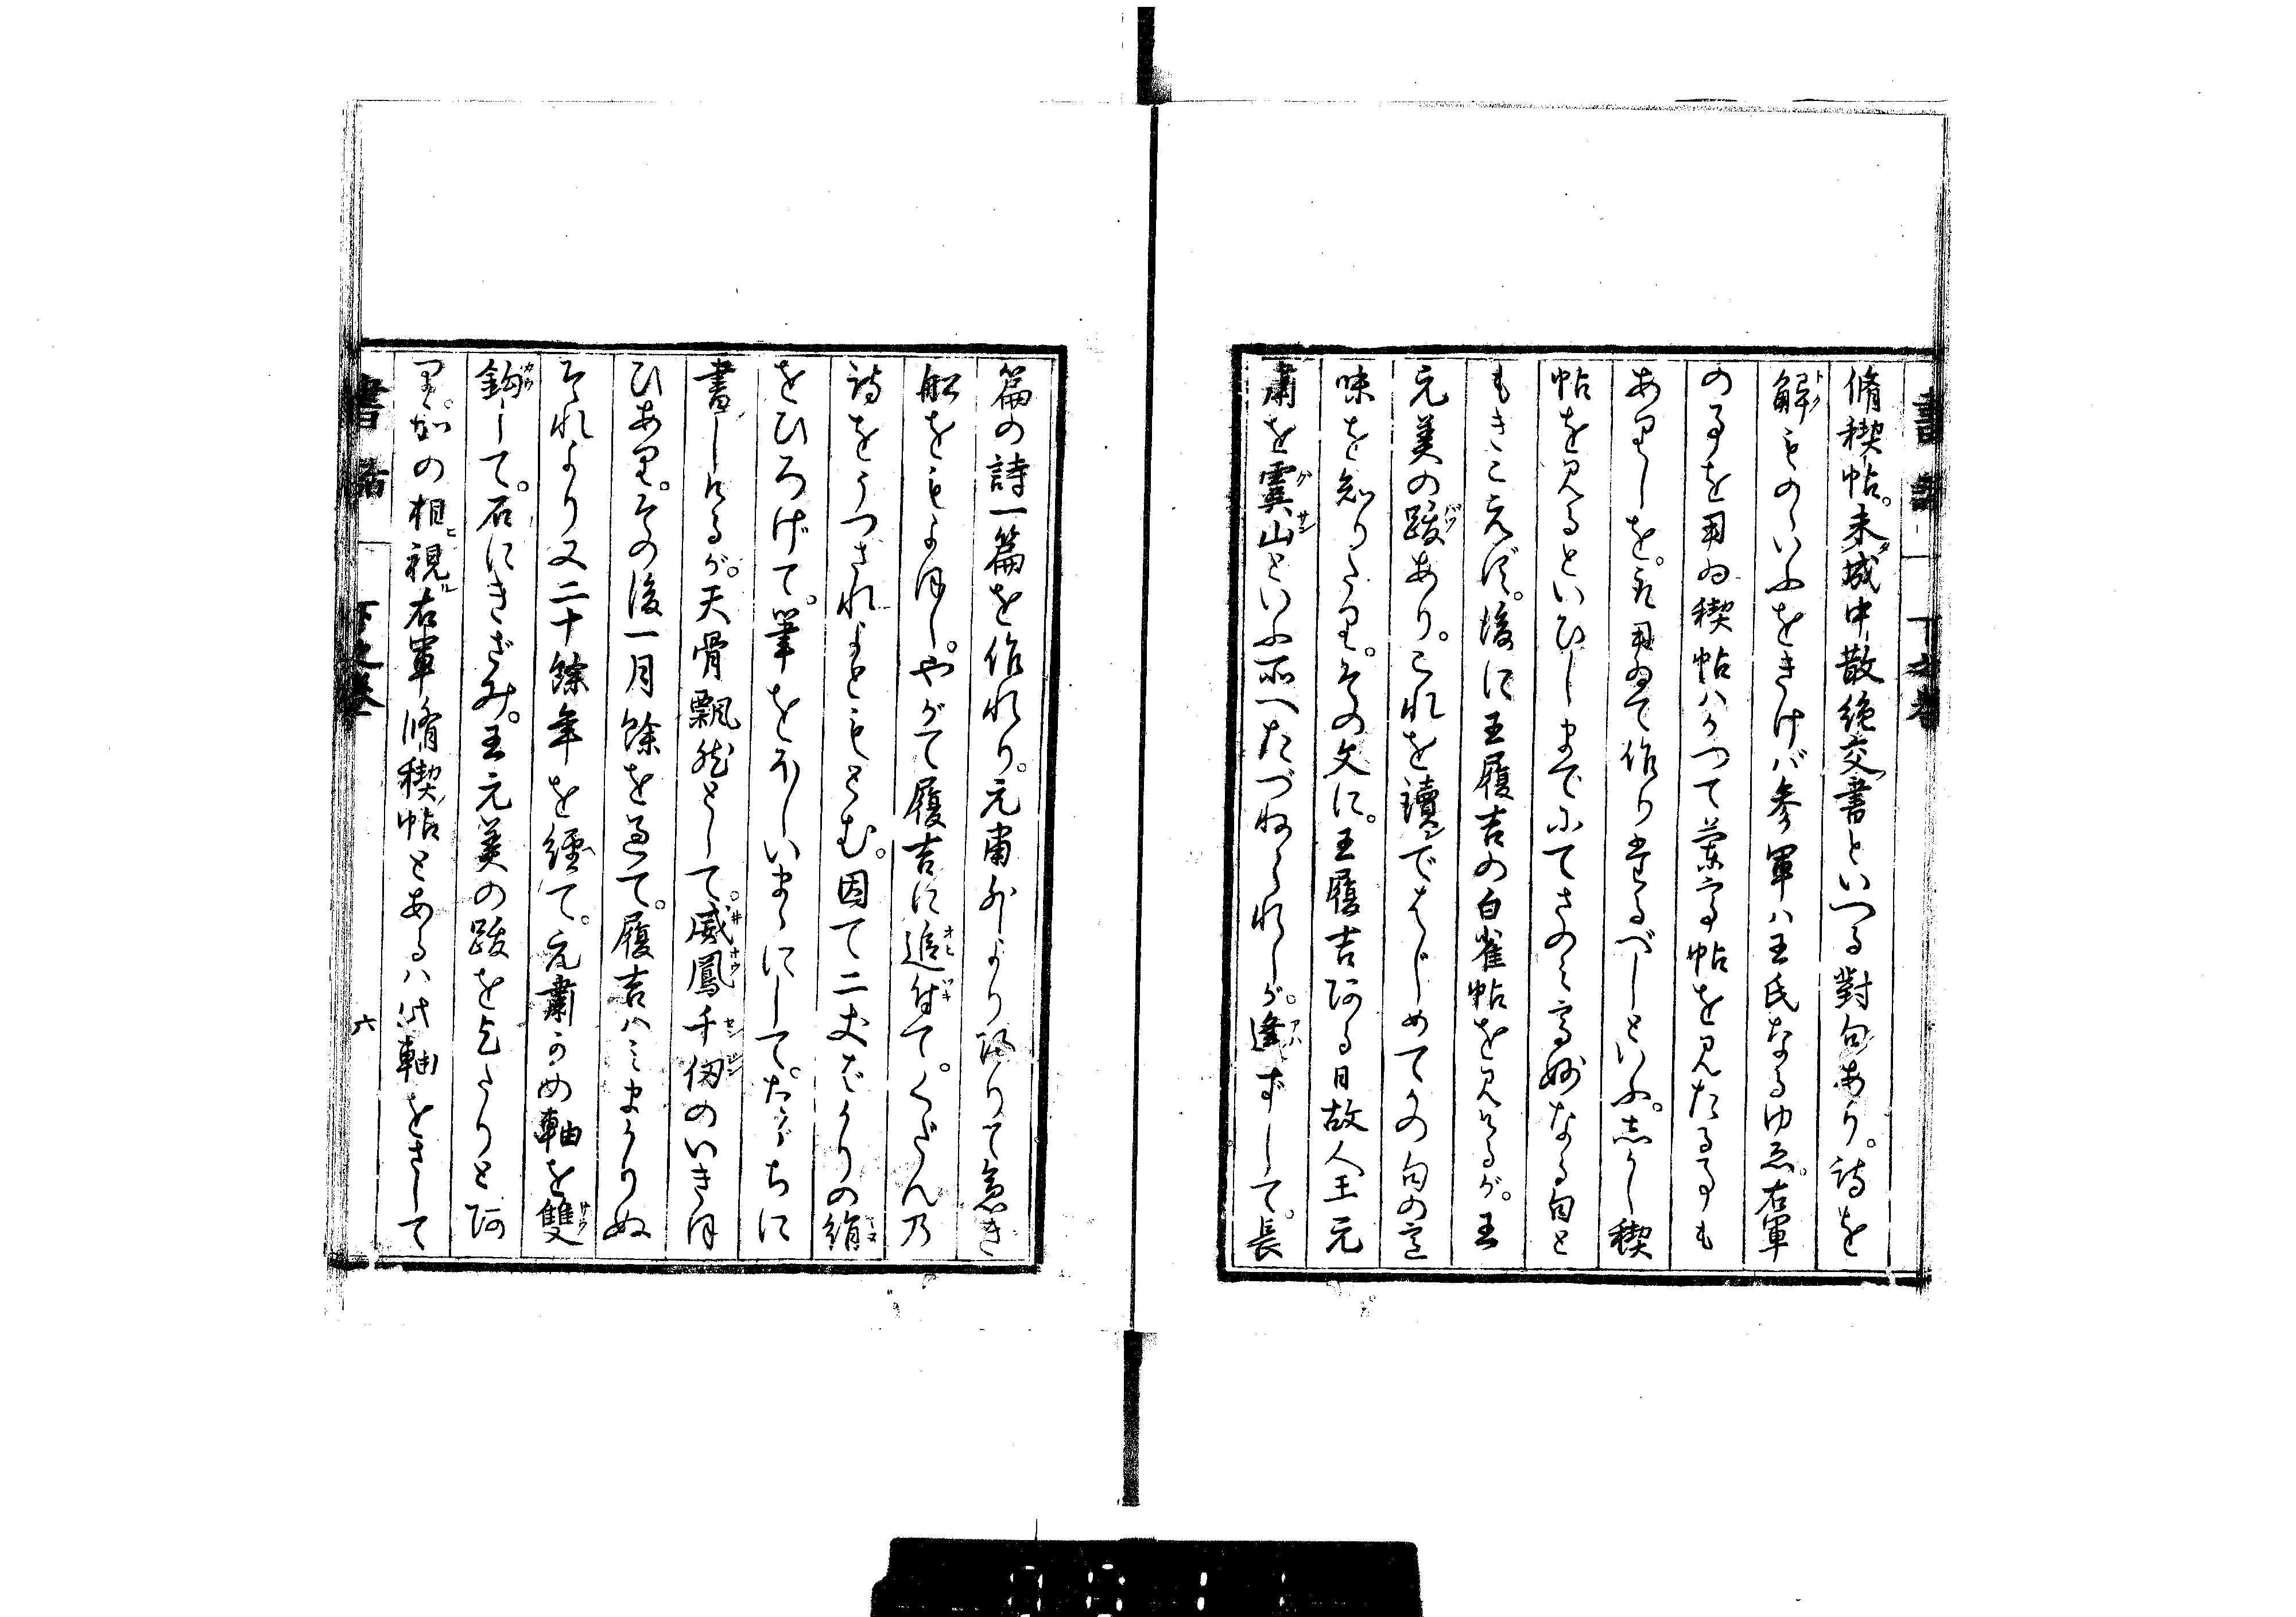 脩禊帖。未減中散絶交書といへる對句あり。詩を
解ものゝいふをきけバ参軍ハ王氏なるゆゑ。右軍
の事を用ゐ禊帖ハかつて蘭亭帖を見たる事も
ありしを。引用ゐて作りたるべしといふ。しかし禊
帖を見るといひしまでにてさのミ高妙なる句と
もきこえず。後に王履吉の白雀帖を見けるが。王
元美の跋あり。これを讀ではじめてかの句の意
味を知りたり。その文に。王履吉阿る日故人王元
肅を虞山といふ所へたづねられしが。逢ずして。長
篇の詩一篇を作れり。元肅外より歸りて急き
船をもよほし。やがて履吉に追付て。くだん乃
詩をうつされよともとむ。因て二丈ばかりの絹
をひろげて。筆をなしいまゝにして。たゞちに
書しけるが。天骨飄然として。威鳳千仭のいきほ
ひあり。その後一月餘を過て。履吉ハミまかりぬ
それより又二十餘年を經て。元肅かの軸を雙
鉤して。石にきざみ。王元美の跋を乞たりと阿
り。如の相視右軍脩禊帖とあるハ此軸をさして
書話
下之巻
六